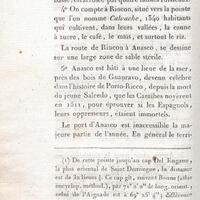 4° On compte à Rincon, situé vers la pointe
que l'on nomme Calvache, 1340 habitants
qui cultivent, dans leurs vallées, la canne
à sucre, le café, le maïs, et surtout le riz.
La route de Rincon à Anasco, se dessine
sur une large zone de sable stérile.
5° Anasco est bâti à une lieue de la mer,
près des bois de Guaoravo, devenu célèbre
dans l'histoire de Porto-Ricco, depuis la mort
du jeune Salcedo, que les Caraïbes noyèrent
en 1511, pour éprouver si les Espagnols,
leurs oppresseurs, étaient immortels.
Le port d'Anasco est inaccessible la ma-
jeure partie de l'année. En général le terri-
(1) De cette pointe jusqu'au cap Del Engano,
le plus oriental de Saint-Domingue, la distance
est de